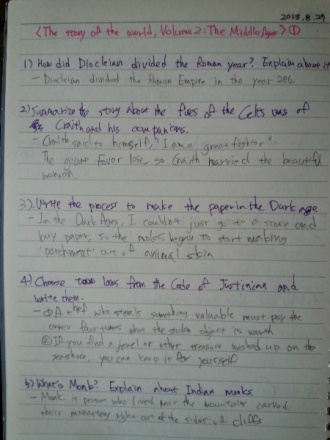 2018.8.29
<The story of the world, Volume 2: The Middle Ages> ①
1) How did Diocleian divided the Roman year? Explain about it
- Diocleian divided the Roman Empire in the year 286.
2) Summarize the story about the of the Celts
and his companions.
- said to himself, "I am a great fighter"
The giant lose, so married the beautiful
woman.
3). Write the process to make the paper in the Dark age
- In the Dark Ages, I couldn't just go to a store and
buy paper, so the began to start making
'parchment' out of animal skin
4) Choose laws from the Code of Justinian and
write them.
- ① A who steals something valuable must pay the
owner four times what the object is worth
② If you find a jewel or other treasure washed up on the
seashore, you can keep it for yourself
5) What's Monk? Explain about Indian monks
- Monk is person who lived near the mountains carved
their monastery right out of the sides of cliffs